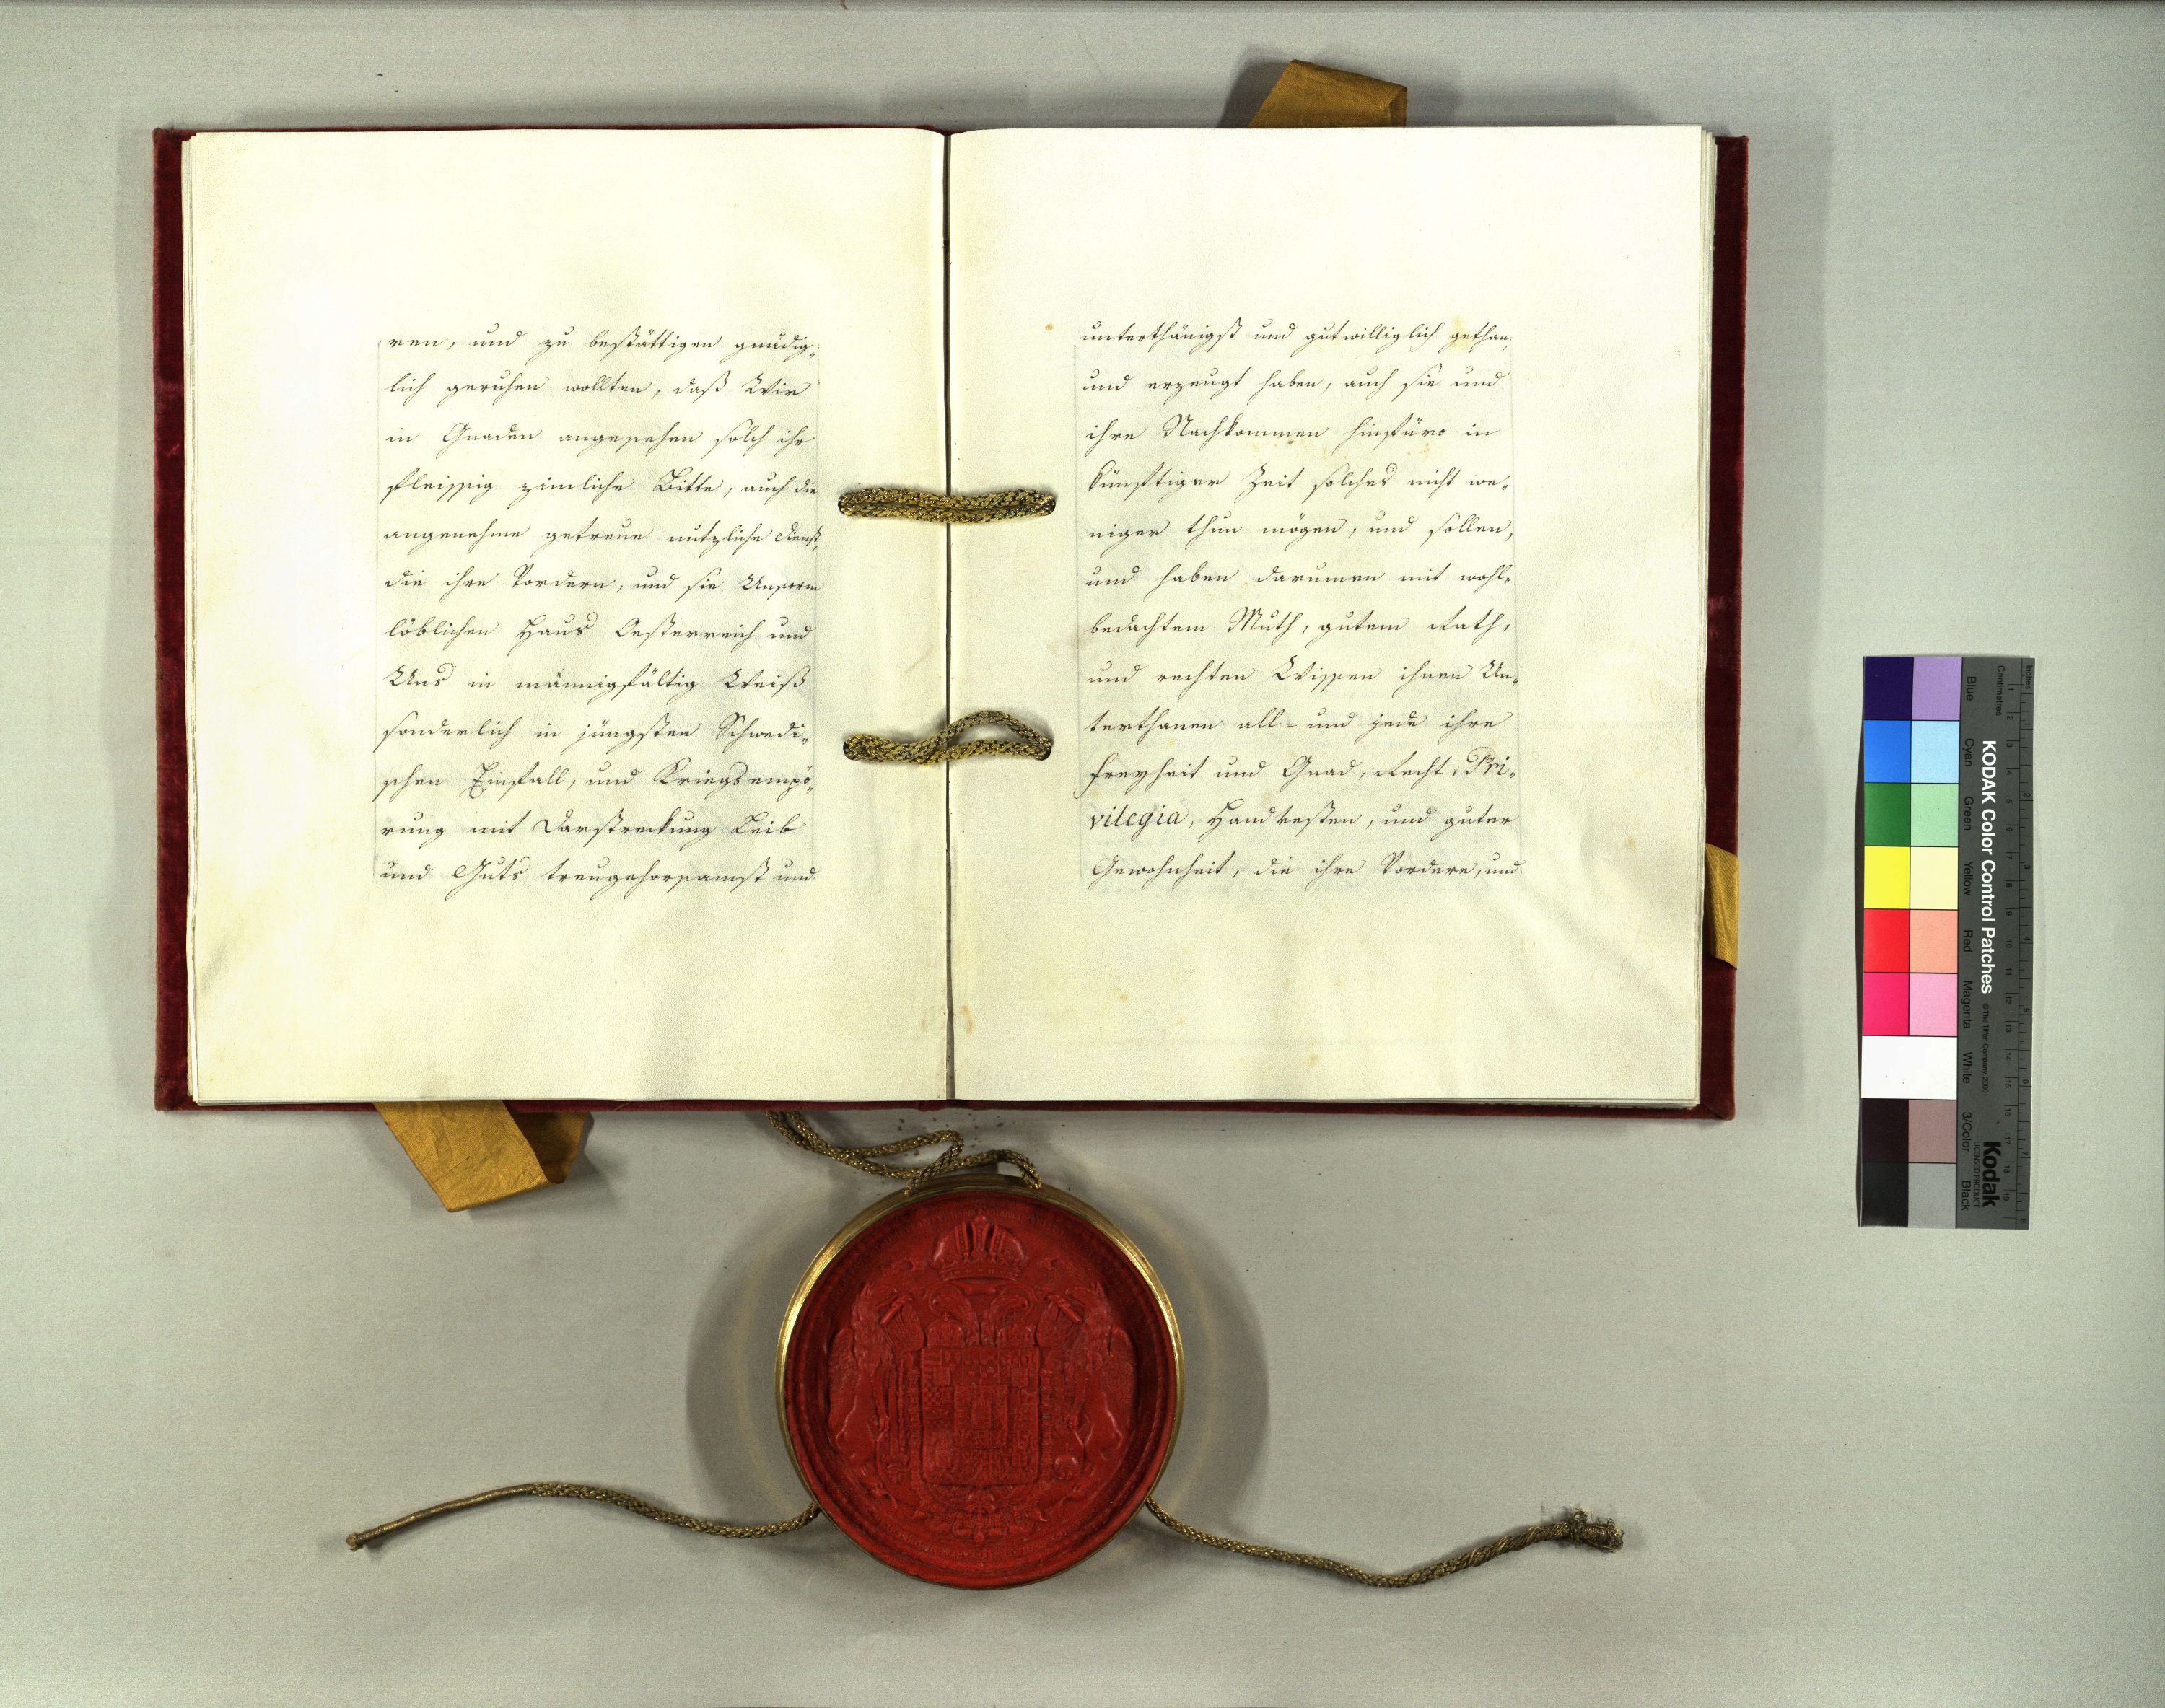 ren, und zu bestättigen gnädig-
lich geruhen wollten, daß Wir
in Gnaden angesehen solch ihr
fleissig zimliche Bitte, auch die
angenehme getreue nutzliche Dienst,
die ihre Vordern, und sie Unserm
löblichen Haus Oesterreich und
Uns in männigfältig Weiß
sonderlich in jüngsten Schwedi-
schen Einfall, und Kriegsempö-
rung mit Darstreckung Leib
und Guts treugehorsamst und
unterthänigst und gutwilliglich gethan,
und erzeugt haben, auch sie und
ihre Nachkommen hinfüro in
künftiger Zeit solches nicht we-
niger thun mögen, und sollen,
und haben darumen mit wohl-
bedachtem Muth, gutem Rath,
und rechten Wissen ihnen Un-
terthanen all- und jede ihre
Freyheit und Gnad, Recht, Pri-
vilegia, Handvesten, und guter
Gewohnheit, die ihre Vordere, und
KODAK Color Control Patches
© The Tiffen Company, 2000
Kodak
LICENSED PRODUCT
Inches
Centimetres
Blue
Cyan
Green
Yellow
Red
Magenta
White
3/Color
Black